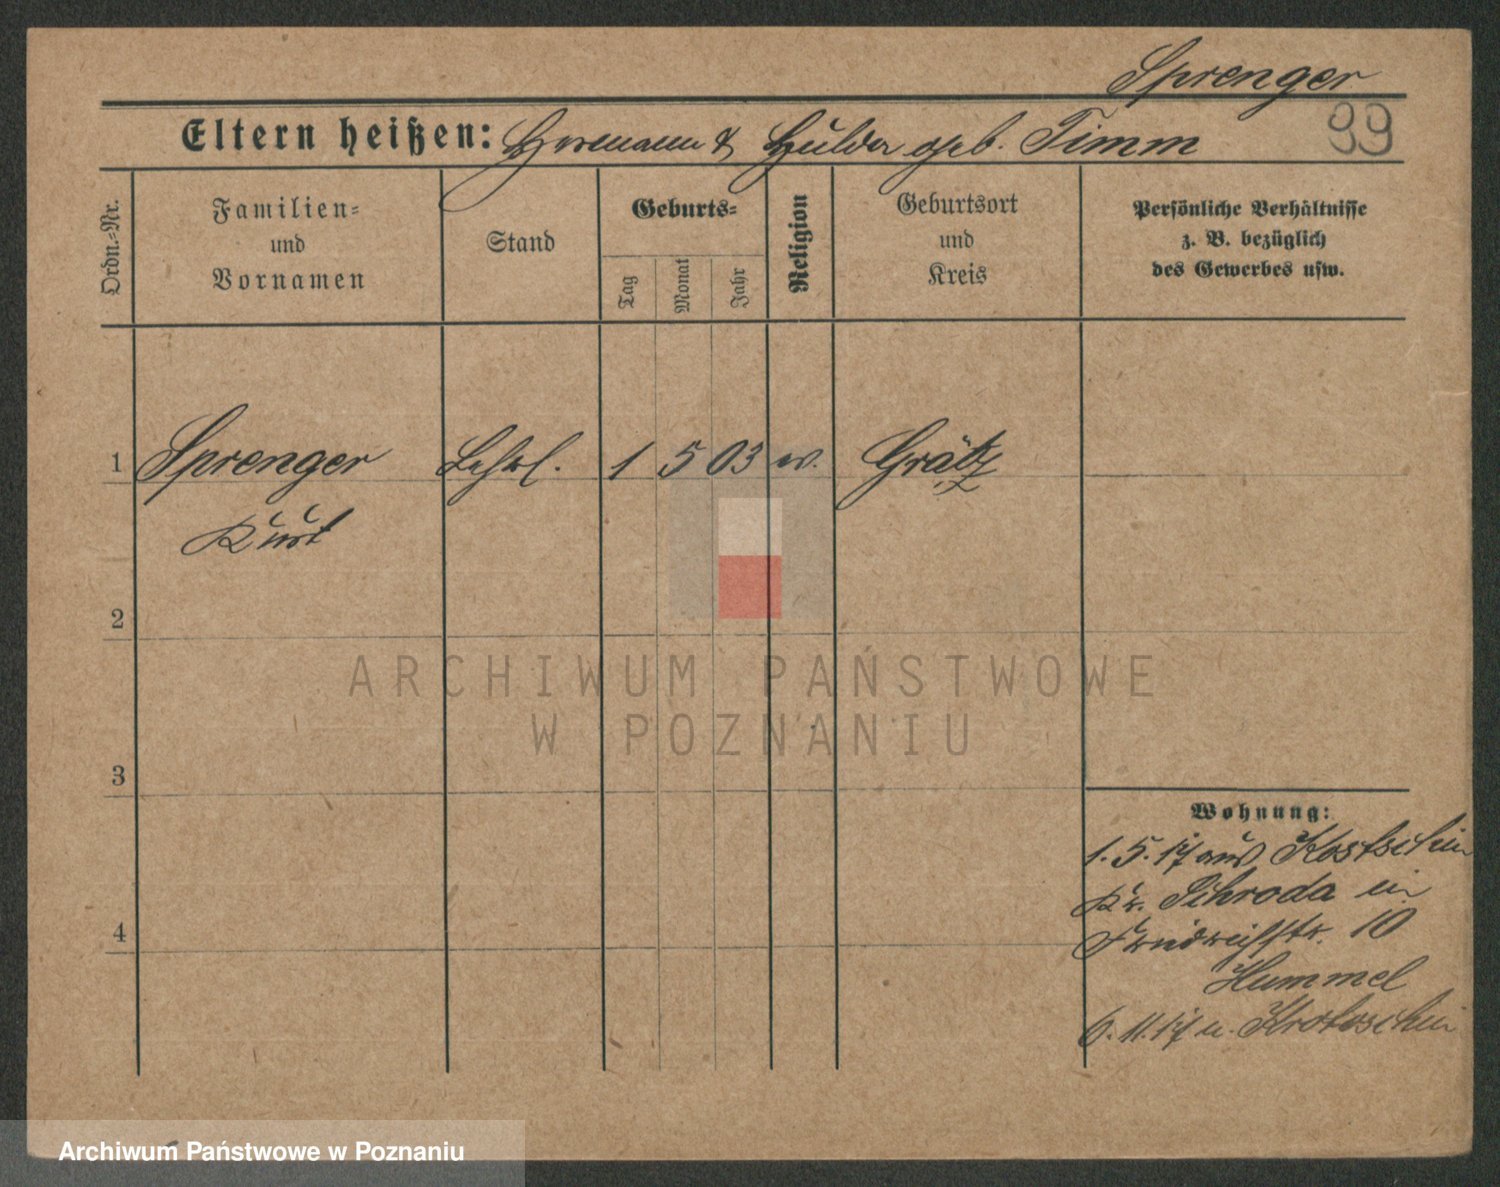 Sprenger
Eltern heißen: Hermann & Hulda geb. Timm
99
Ordn.-Nr.
Familien-
und
Vornamen
Stand
Geburts-
Tag
Monat
Jahr
Religion
Geburtsort
und
Kreis
Persönliche Verhältnisse
z. B. bezüglich
des Gewerbes usw.
1 Sprenger Lehrl. 1 5 03 ev. Grätz
Kurt
2
3
4
Wohnung:
1. 5. 17 aus Kostschin
Kr. Schroda in
Friedrichstr. 10
Hummel
6. 11. 17 n. Krotoschin
ARCHIWUM PAŃSTWOWE
W POZNANIU
Archiwum Państwowe w Poznaniu